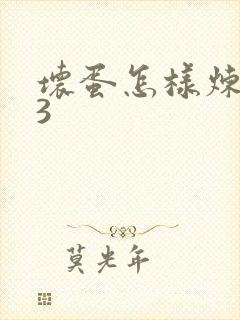 壞蛋怎樣煉
3
莫光年